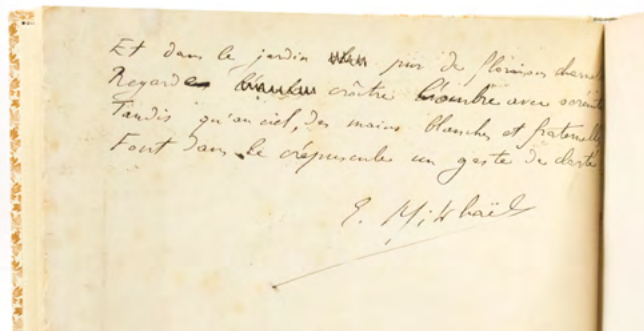 Et dans le jardin pur de floraisons charnelles
Regarde croître l'ombre avec sérénité
Tandis qu'au ciel, des mains blanches et fraternelles
Font dans le crépuscule un geste de clarté
E. Mikhaël